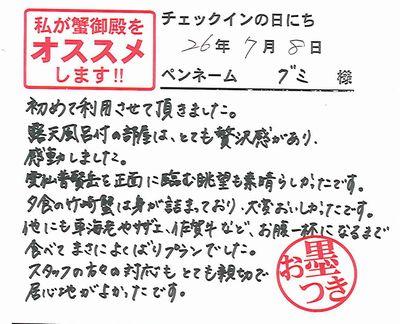 私が蟹御殿を
オススメ
します!!
チェックインの日にち
26年7月8日
ペンネーム グミ 様
初めて利用させて頂きました。
露天風呂付の部屋は、とても贅沢感があり、
感動しました。
雲仙普賢岳を正面に臨む眺望も素晴らしかたです。
夕食の竹崎蟹は身が詰まっており、大変おいしかたです。
他にも車海老やサザエ、佐賀牛など、お腹一杯になるまで
食べてまさによくばりプランでした。
スタッフの方々の対応もとても親切で
居心地がよかたです。
お墨つき